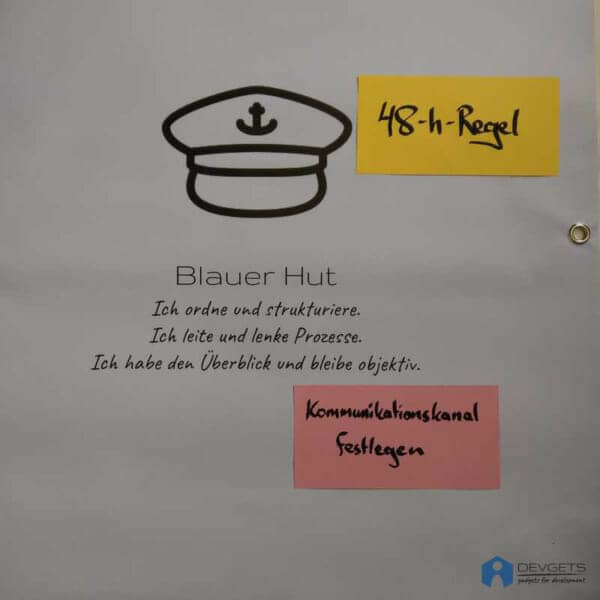 48-h-Regel
Blauer Hut
Ich ordne und strukturiere.
Ich leite und lenke Prozesse.
Ich habe den Überblick und bleibe objektiv.
Kommunikationskanal
festlegen
DEVGETS
gadgets for development